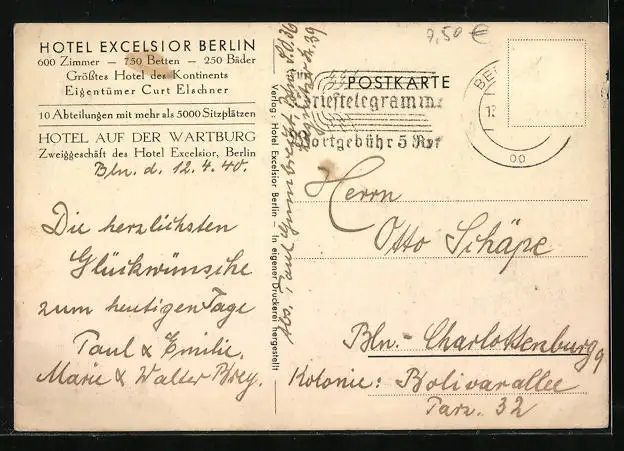 HOTEL EXCELSIOR BERLIN
600 Zimmer — 750 Betten — 250 Bäder
Größtes Hotel des Kontinents
Eigentümer Curt Elschner
10 Abteilungen mit mehr als 5000 Sitzplätzen
HOTEL AUF DER WARTBURG
Zweiggeschäft des Hotel Excelsior, Berlin
Bln. d. 12.4.40.
Die herzlichsten
Glückwünsche
zum heutigen Tage
Paul & Emilie,
Marie & Walter Brey.
Verlag: Hotel Excelsior Berlin – In eigener Druckerei hergestellt
Abs. Paul
7,50 €
POSTKARTE
Brieftelegramme
Wortgebühr 5 Rpf
BE
Herrn
Otto Schäpe
Bln.- Charlottenburg 9
Kolonie: Bolivarallee
Parz. 32